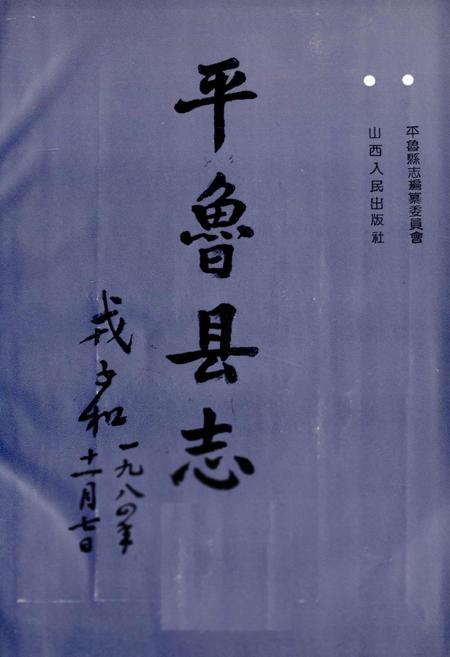 平鲁縣志編纂委員會
山西人民出版社
平魯县志
戎子和
一九八四年
十一月七日